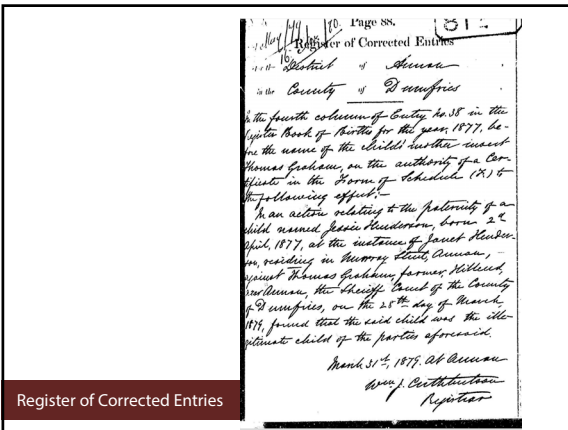 Page 88.
Register of Corrected Entries
District of Annan
in the County of Dumfries
In the fourth column of Entry No. 38 in the
Register Book of Births for the year, 1877, be-
fore the name of the child's mother insert
Thomas Graham, on the authority of a Cer-
tificate in the Form of Schedule (F.) to
the following effect:—
In an action relating to the paternity of a
child named Jessie Henderson, born 2nd
April, 1877, at the instance of Janet Hender-
son, residing in Murray Street, Annan, –
against Thomas Graham, farmer, Hitland,
near Annan, the Sheriff Court of the County
of Dumfries, on the 28th day of March,
1879, found that the said child was the ille-
gitimate child of the parties aforesaid.
March 31st, 1879. At Annan
Wm J. Cuthbertson
Registrar
Register of Corrected Entries